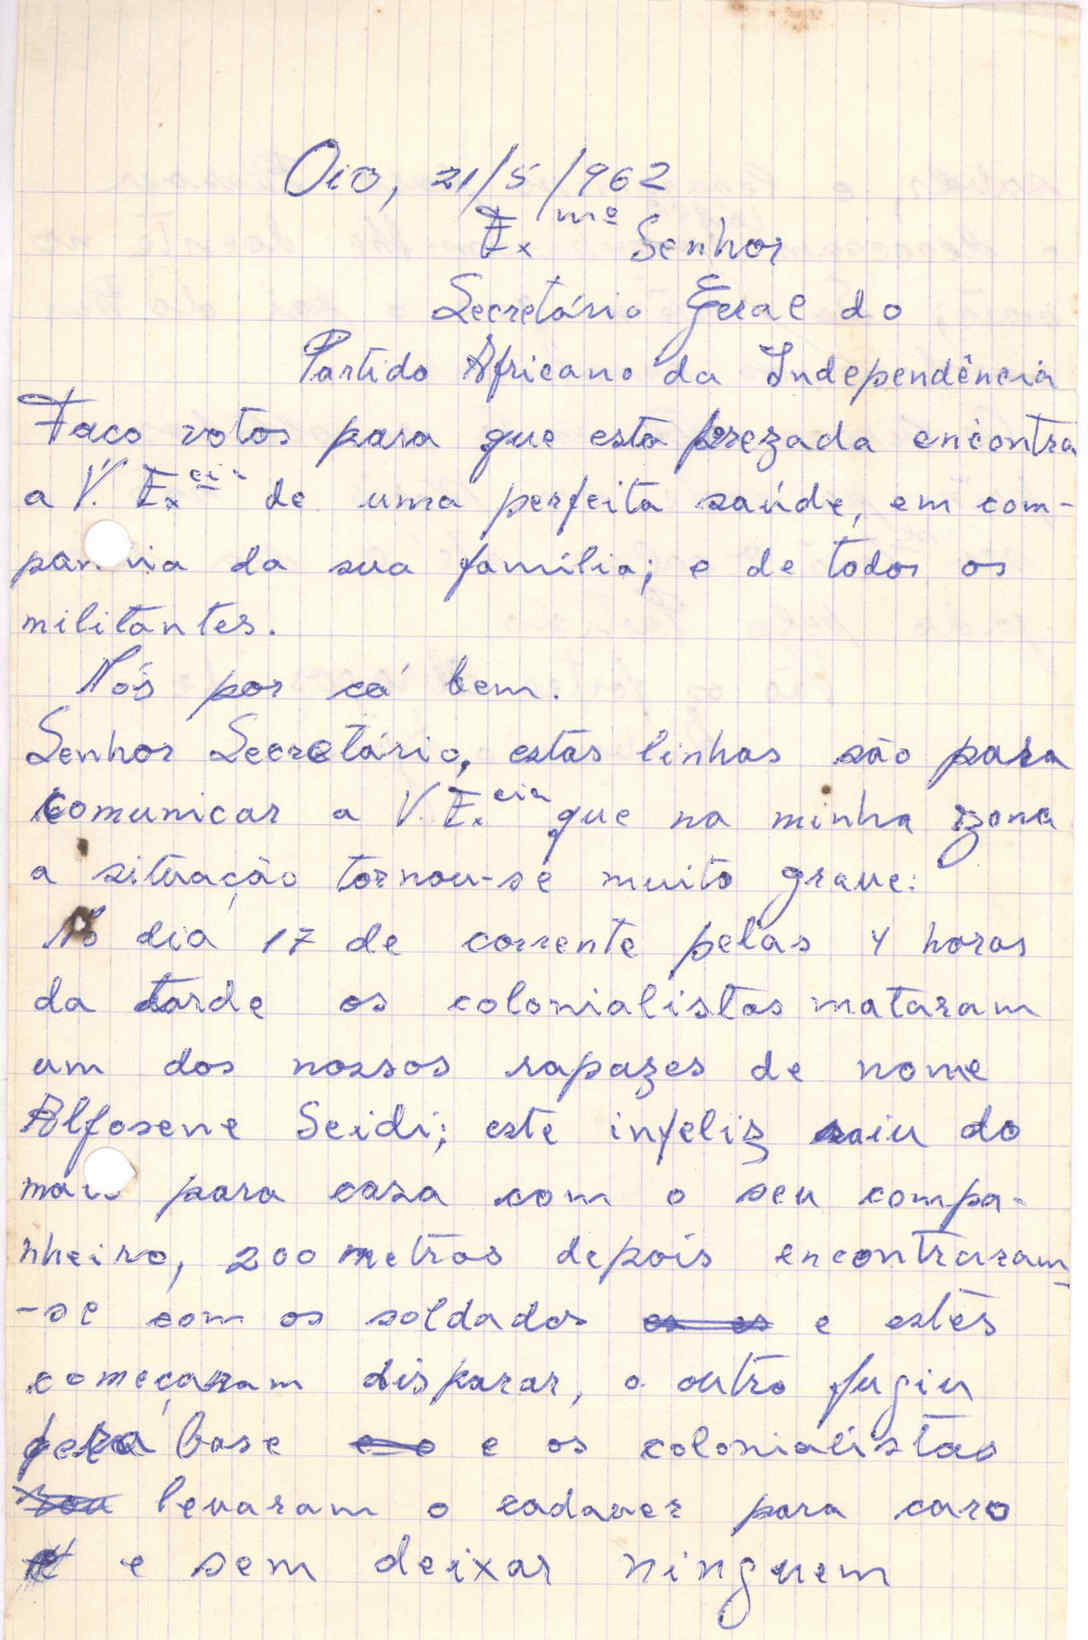 Oio, 21/5/962
Ex mº Senhor
Secretário Geral do
Partido Africano da Independência
Faco votos para que esta prezada encontra
a V. Ex cia de uma perfeita saúde, em com-
pania da sua família; e de todos os
militantes.
Nós por cá bem.
Senhor Secretário, estas linhas são para
comunicar a V. Ex. cia que na minha zona
a situação tornou-se muito grave:
No dia 17 de corrente pelas 4 horas
da tarde os colonialistas mataram
um dos nossos rapazes de nome
Alfosene Seidi; este infeliz saiu do
mato para casa com o seu compa-
nheiro, 200 metros depois encontraram-
-se com os soldados e estes
começaram disparar, o outro fugiu
pera base e os colonialistas
levaram o cadaver para caro
e sem deixar ninguem